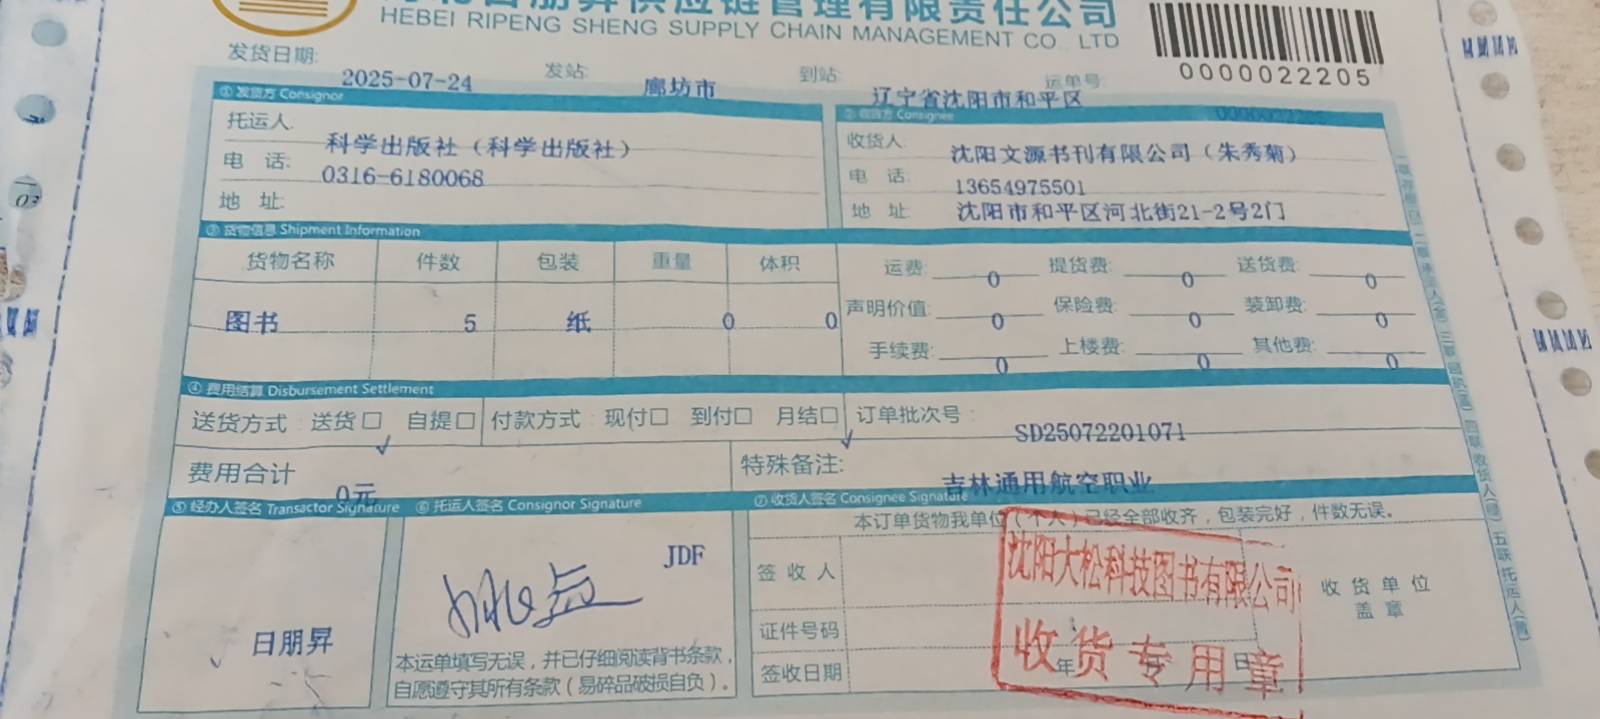 河北日朋昇供应链管理有限责任公司
HEBEI RIPENG SHENG SUPPLY CHAIN MANAGEMENT CO., LTD
0000022205
发货日期: 2025-07-24 发站: 廊坊市 到站: 辽宁省沈阳市和平区 运单号 0000022205
① 发货方 Consignor ② 收货方 Consignee
托运人: 科学出版社（科学出版社） 收货人: 沈阳文源书刊有限公司（朱秀菊）
电 话: 0316-6180068 电 话: 13654975501
地 址: 地 址: 沈阳市和平区河北街21-2号2门
③ 货物信息 Shipment Information
货物名称 件数 包装 重量 体积 运费: 0 提货费: 0 送货费: 0
图书 5 纸 0 0 声明价值: 0 保险费: 0 装卸费: 0
手续费: 0 上楼费: 0 其他费: 0
④ 费用结算 Disbursement Settlement
送货方式: 送货☐ ✓ 自提☐ 付款方式: 现付☐ 到付☐ 月结☐ ✓ 订单批次号: SD25072201071
费用合计 0元 特殊备注: 吉林通用航空职业
⑤ 经办人签名 Transactor Signature ⑥ 托运人签名 Consignor Signature ⑦ 收货人签名 Consignee Signature
本订单货物我单位（个人）已经全部收齐，包装完好，件数无误。
JDF
签收人
沈阳大松科技图书有限公司
收货单位
盖章
日朋昇
证件号码
收货专用章
本运单填写无误，并已仔细阅读背书条款，
自愿遵守其所有条款（易碎品破损自负）。
签收日期 年 日
03